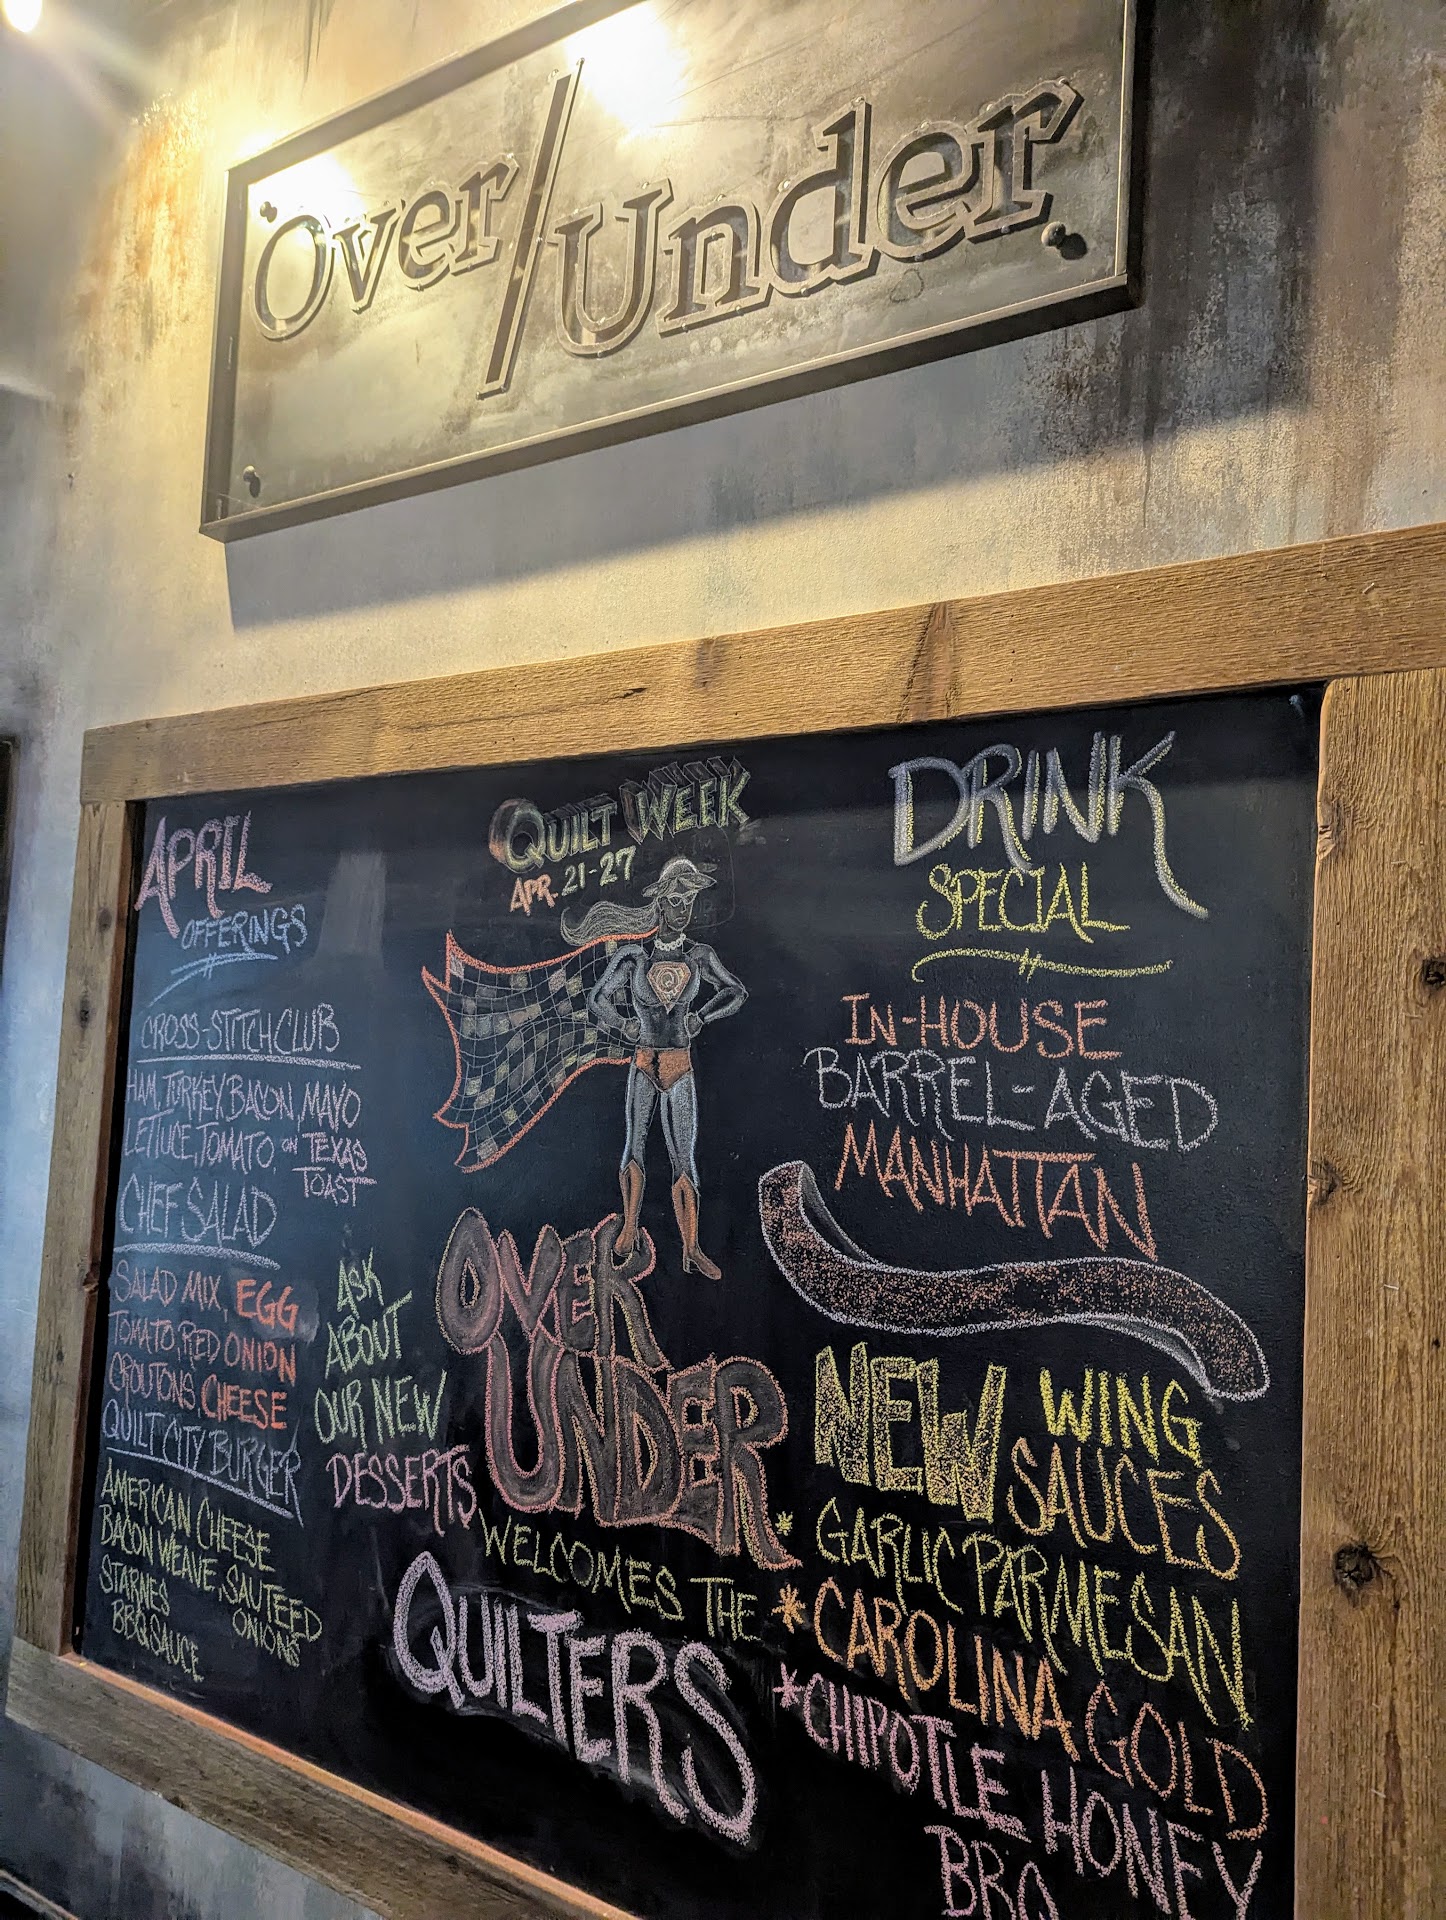 Over/Under
APRIL
OFFERINGS
CROSS-STITCH CLUB
HAM, TURKEY, BACON, MAYO
LETTUCE, TOMATO, on TEXAS
TOAST
CHEF SALAD
SALAD MIX, EGG
TOMATO, RED ONION
CROUTONS, CHEESE
QUILT CITY BURGER
AMERICAN CHEESE
BACON WEAVE, SAUTEED
ONIONS
STARNES
BBQ SAUCE
ASK
ABOUT
OUR NEW
DESSERTS
QUILT WEEK
APR. 21-27
Q
OVER
UNDER
WELCOMES THE
QUILTERS
DRINK
SPECIAL
IN-HOUSE
BARREL-AGED
MANHATTAN
NEW WING
SAUCES
* GARLIC PARMESAN
* CAROLINA GOLD
* CHIPOTLE HONEY
BBQ